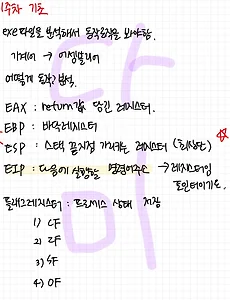 1주차 기초
exe파일을 분석해서 동작로직을 보아냄.
기계어 → 어셈블리어
어떻게 동작? 분석.
EAX : return값 담긴 레지스터.
EBP : 바닥레지스터
ESP : 스택 끝지점 가리키는 레지스터 (최상단)
EIP : 다음에 실행할 명령어주소 → 레지스터임 포인터이기도.
플래그레지스터 : 프로세스 상태 저장
1) CF
2) ZF
3) SF
4) OF